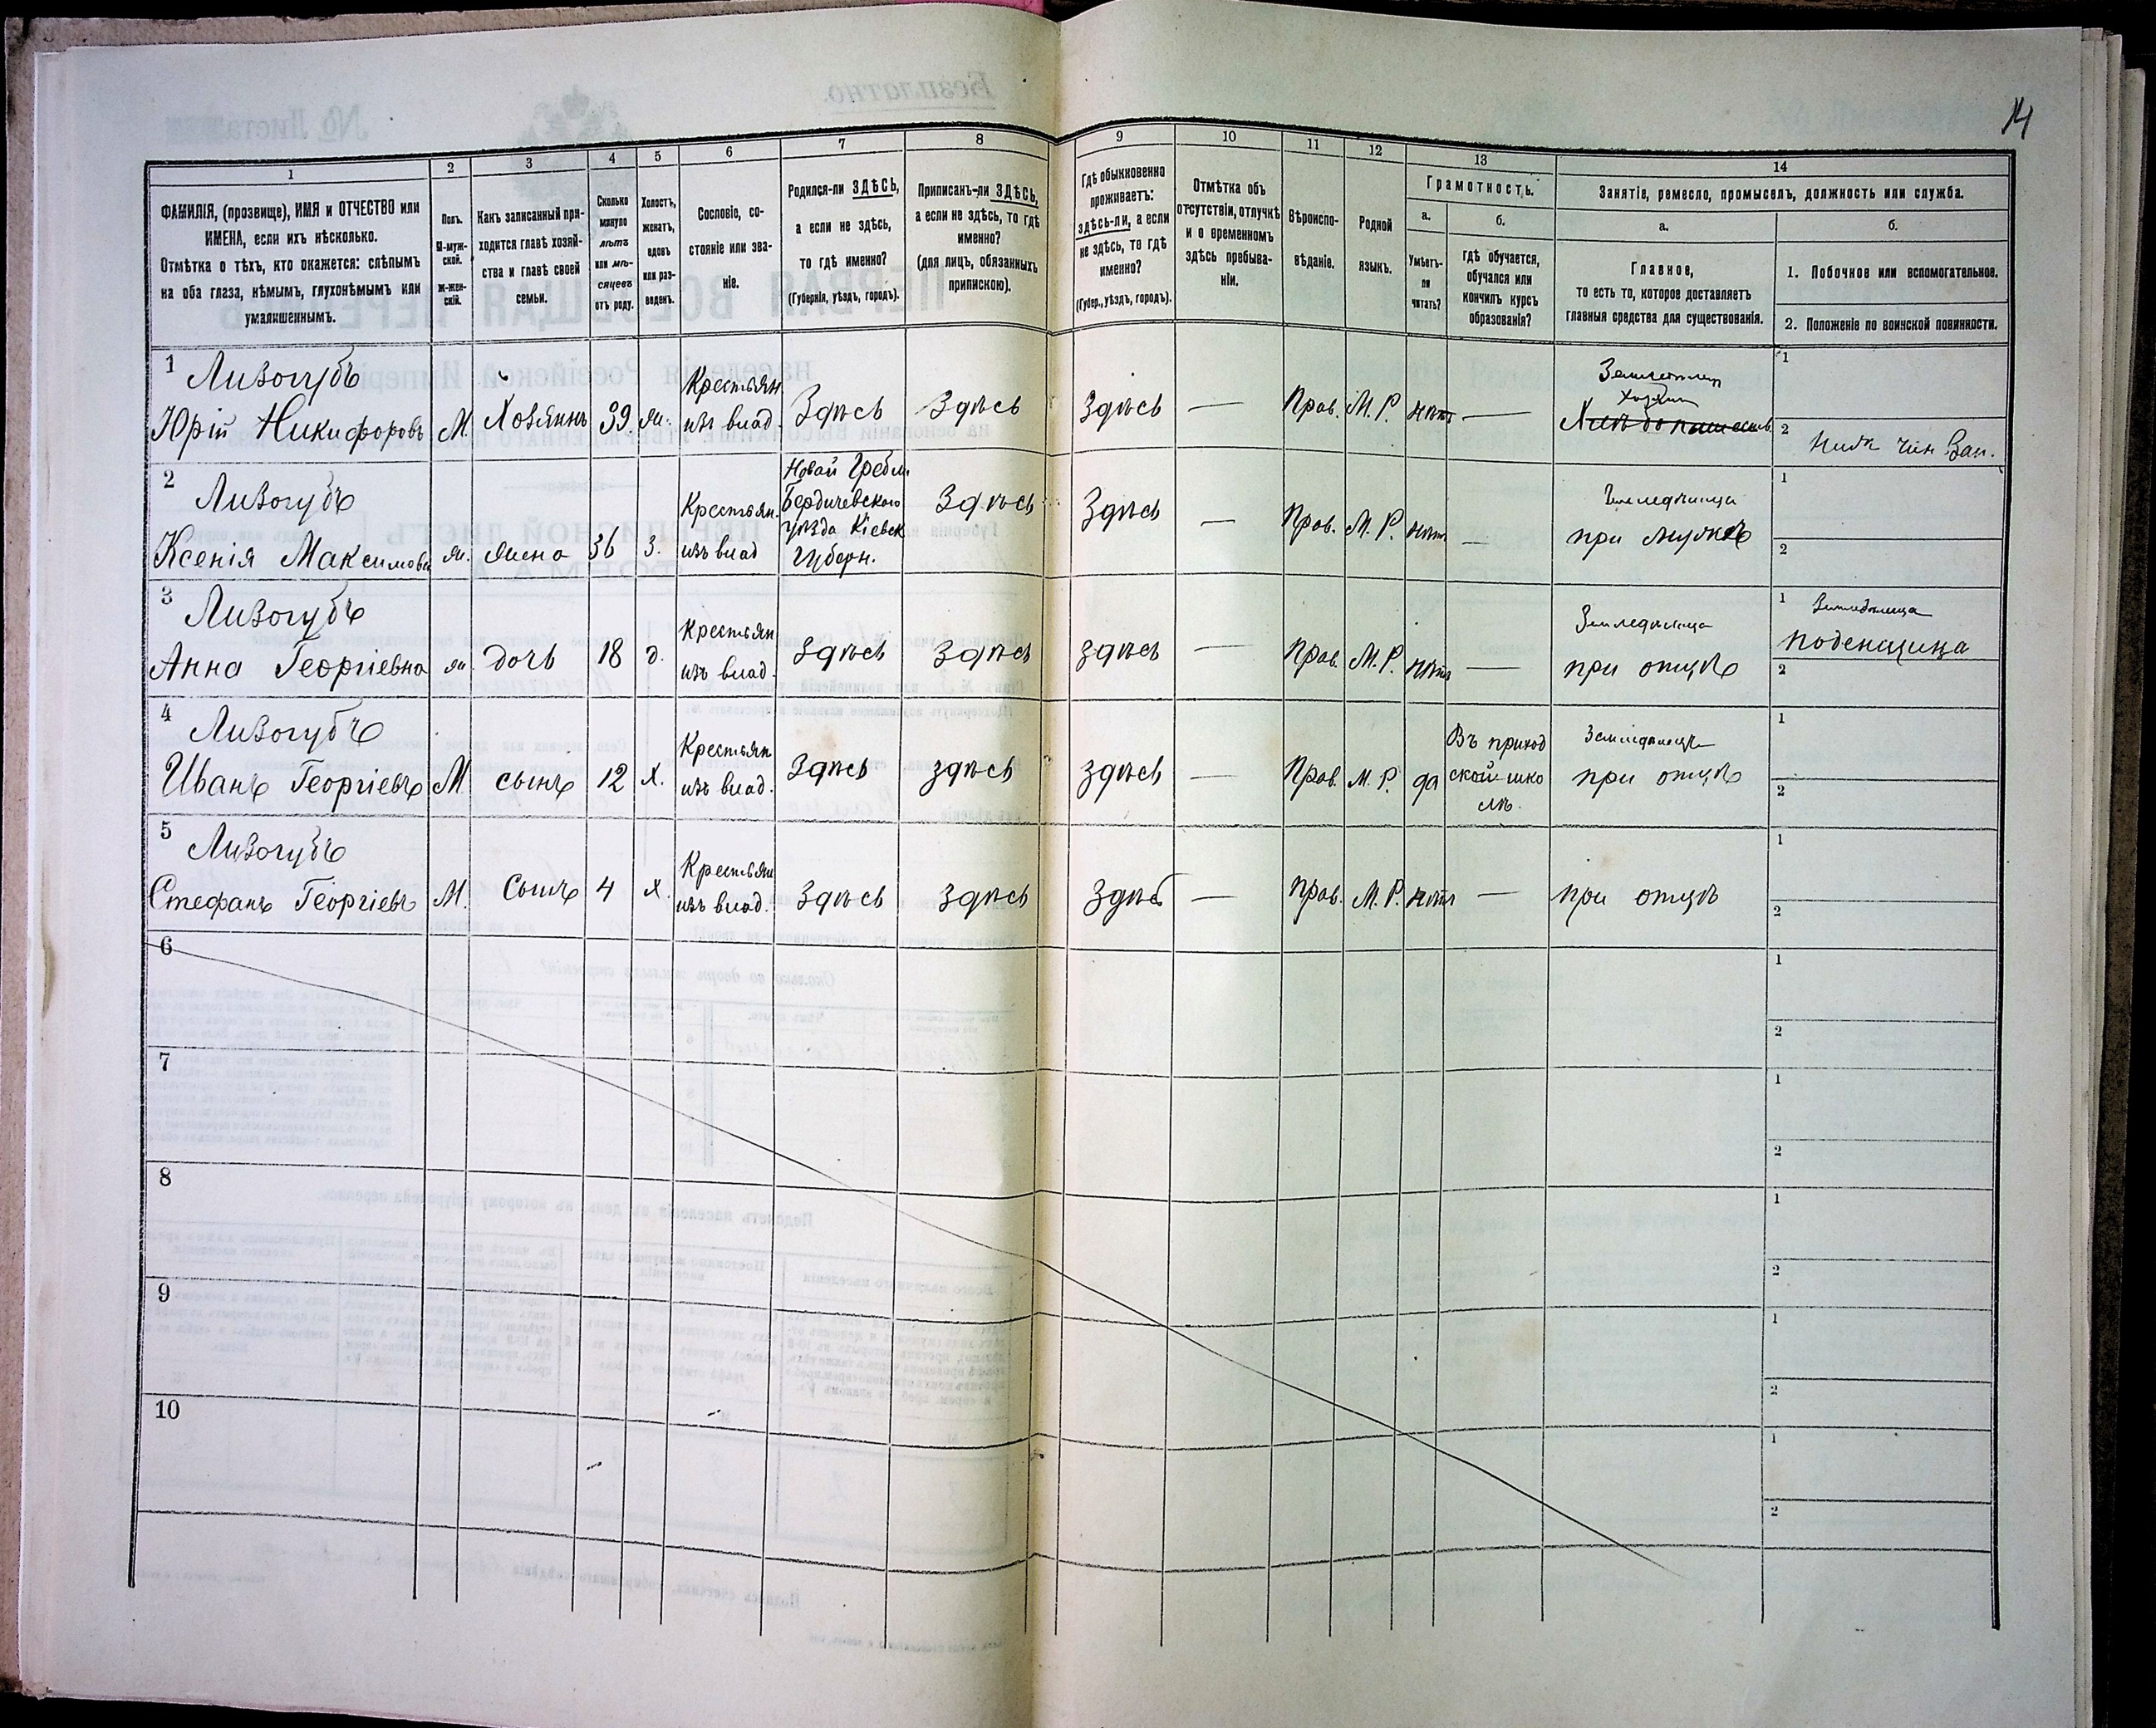 14
1
2
3
4
5
6
7
8
9
10
11
12
13
14
ФАМИЛІЯ, (прозвище), ИМЯ и ОТЧЕСТВО или
ИМЕНА, если ихъ нѣсколько.
Отмѣтка о тѣхъ, кто окажется: слѣпымъ
на оба глаза, нѣмымъ, глухонѣмымъ или
умалишеннымъ.
Полъ.
М-муж-
ской.
Ж-жен-
скій.
Какъ записанный при-
ходится главѣ хозяй-
ства и главѣ своей
семьи.
Сколько
минуло
лѣтъ
или мѣ-
сяцевъ
отъ роду.
Холостъ,
женатъ,
вдовъ
или раз-
веденъ.
Сословіе, со-
стояніе или зва-
ніе.
Родился-ли ЗДѢСЬ,
а если не здѣсь,
то гдѣ именно?
(Губернія, уѣздъ, городъ).
Приписанъ-ли ЗДѢСЬ,
а если не здѣсь, то гдѣ
именно?
(для лицъ, обязанныхъ
припискою).
Гдѣ обыкновенно
проживаетъ:
здѣсь-ли, а если
не здѣсь, то гдѣ
именно?
(Губер., уѣздъ, городъ).
Отмѣтка объ
отсутствіи, отлучкѣ
и о временномъ
здѣсь пребыва-
ніи.
Вѣроиспо-
вѣданіе.
Родной
языкъ.
Грамотность.
а.
Умѣетъ-
ли
читать?
б.
гдѣ обучается,
обучался или
кончилъ курсъ
образованія?
Занятіе, ремесло, промыселъ, должность или служба.
а.
Главное,
то есть то, которое доставляетъ
главныя средства для существованія.
б.
1. Побочное или вспомогательное.
2. Положеніе по воинской повинности.
1 Лизогубъ
Юрій Никифоровъ М. Хозяинъ 39 ж. Крестьян. изъ влад. Здѣсь Здѣсь Здѣсь — Прав. М. Р. нѣтъ —
Хозяин
1
2 Нижн чин Зап.
2 Лизогубъ
Ксенія Максимовн ж. жена 36 З. Крестьян. изъ влад
Новой Гребл.
Бердичевского
уѣзда Кіевск
Губерн.
Здѣсь Здѣсь — Прав. М. Р. нѣтъ —
Земледѣлица
при мужѣ
1
2
3 Лизогубъ
Анна Георгіевна ж. дочь 18 д. Крестьян изъ влад. Здѣсь Здѣсь Здѣсь — Прав. М. Р. нѣтъ —
Земледѣлица
при отцѣ
1 Земледѣлица
поденщица
2
4 Лизогубъ
Иванъ Георгіевъ М. сынъ 12 Х. Крестьян изъ влад. Здѣсь здѣсь здѣсь — Прав. М. Р. да
Въ приход
ской шко
лѣ.
Земледѣлецъ
при отцѣ
1
2
5 Лизогубъ
Стефанъ Георгіевъ М. Сынъ 4 х. Крестьян изъ влад. Здѣсь Здѣсь Здѣсь — прав. М. Р. нѣтъ — при отцѣ
1
2
6
1
2
7
1
2
8
1
2
9
1
2
10
1
2